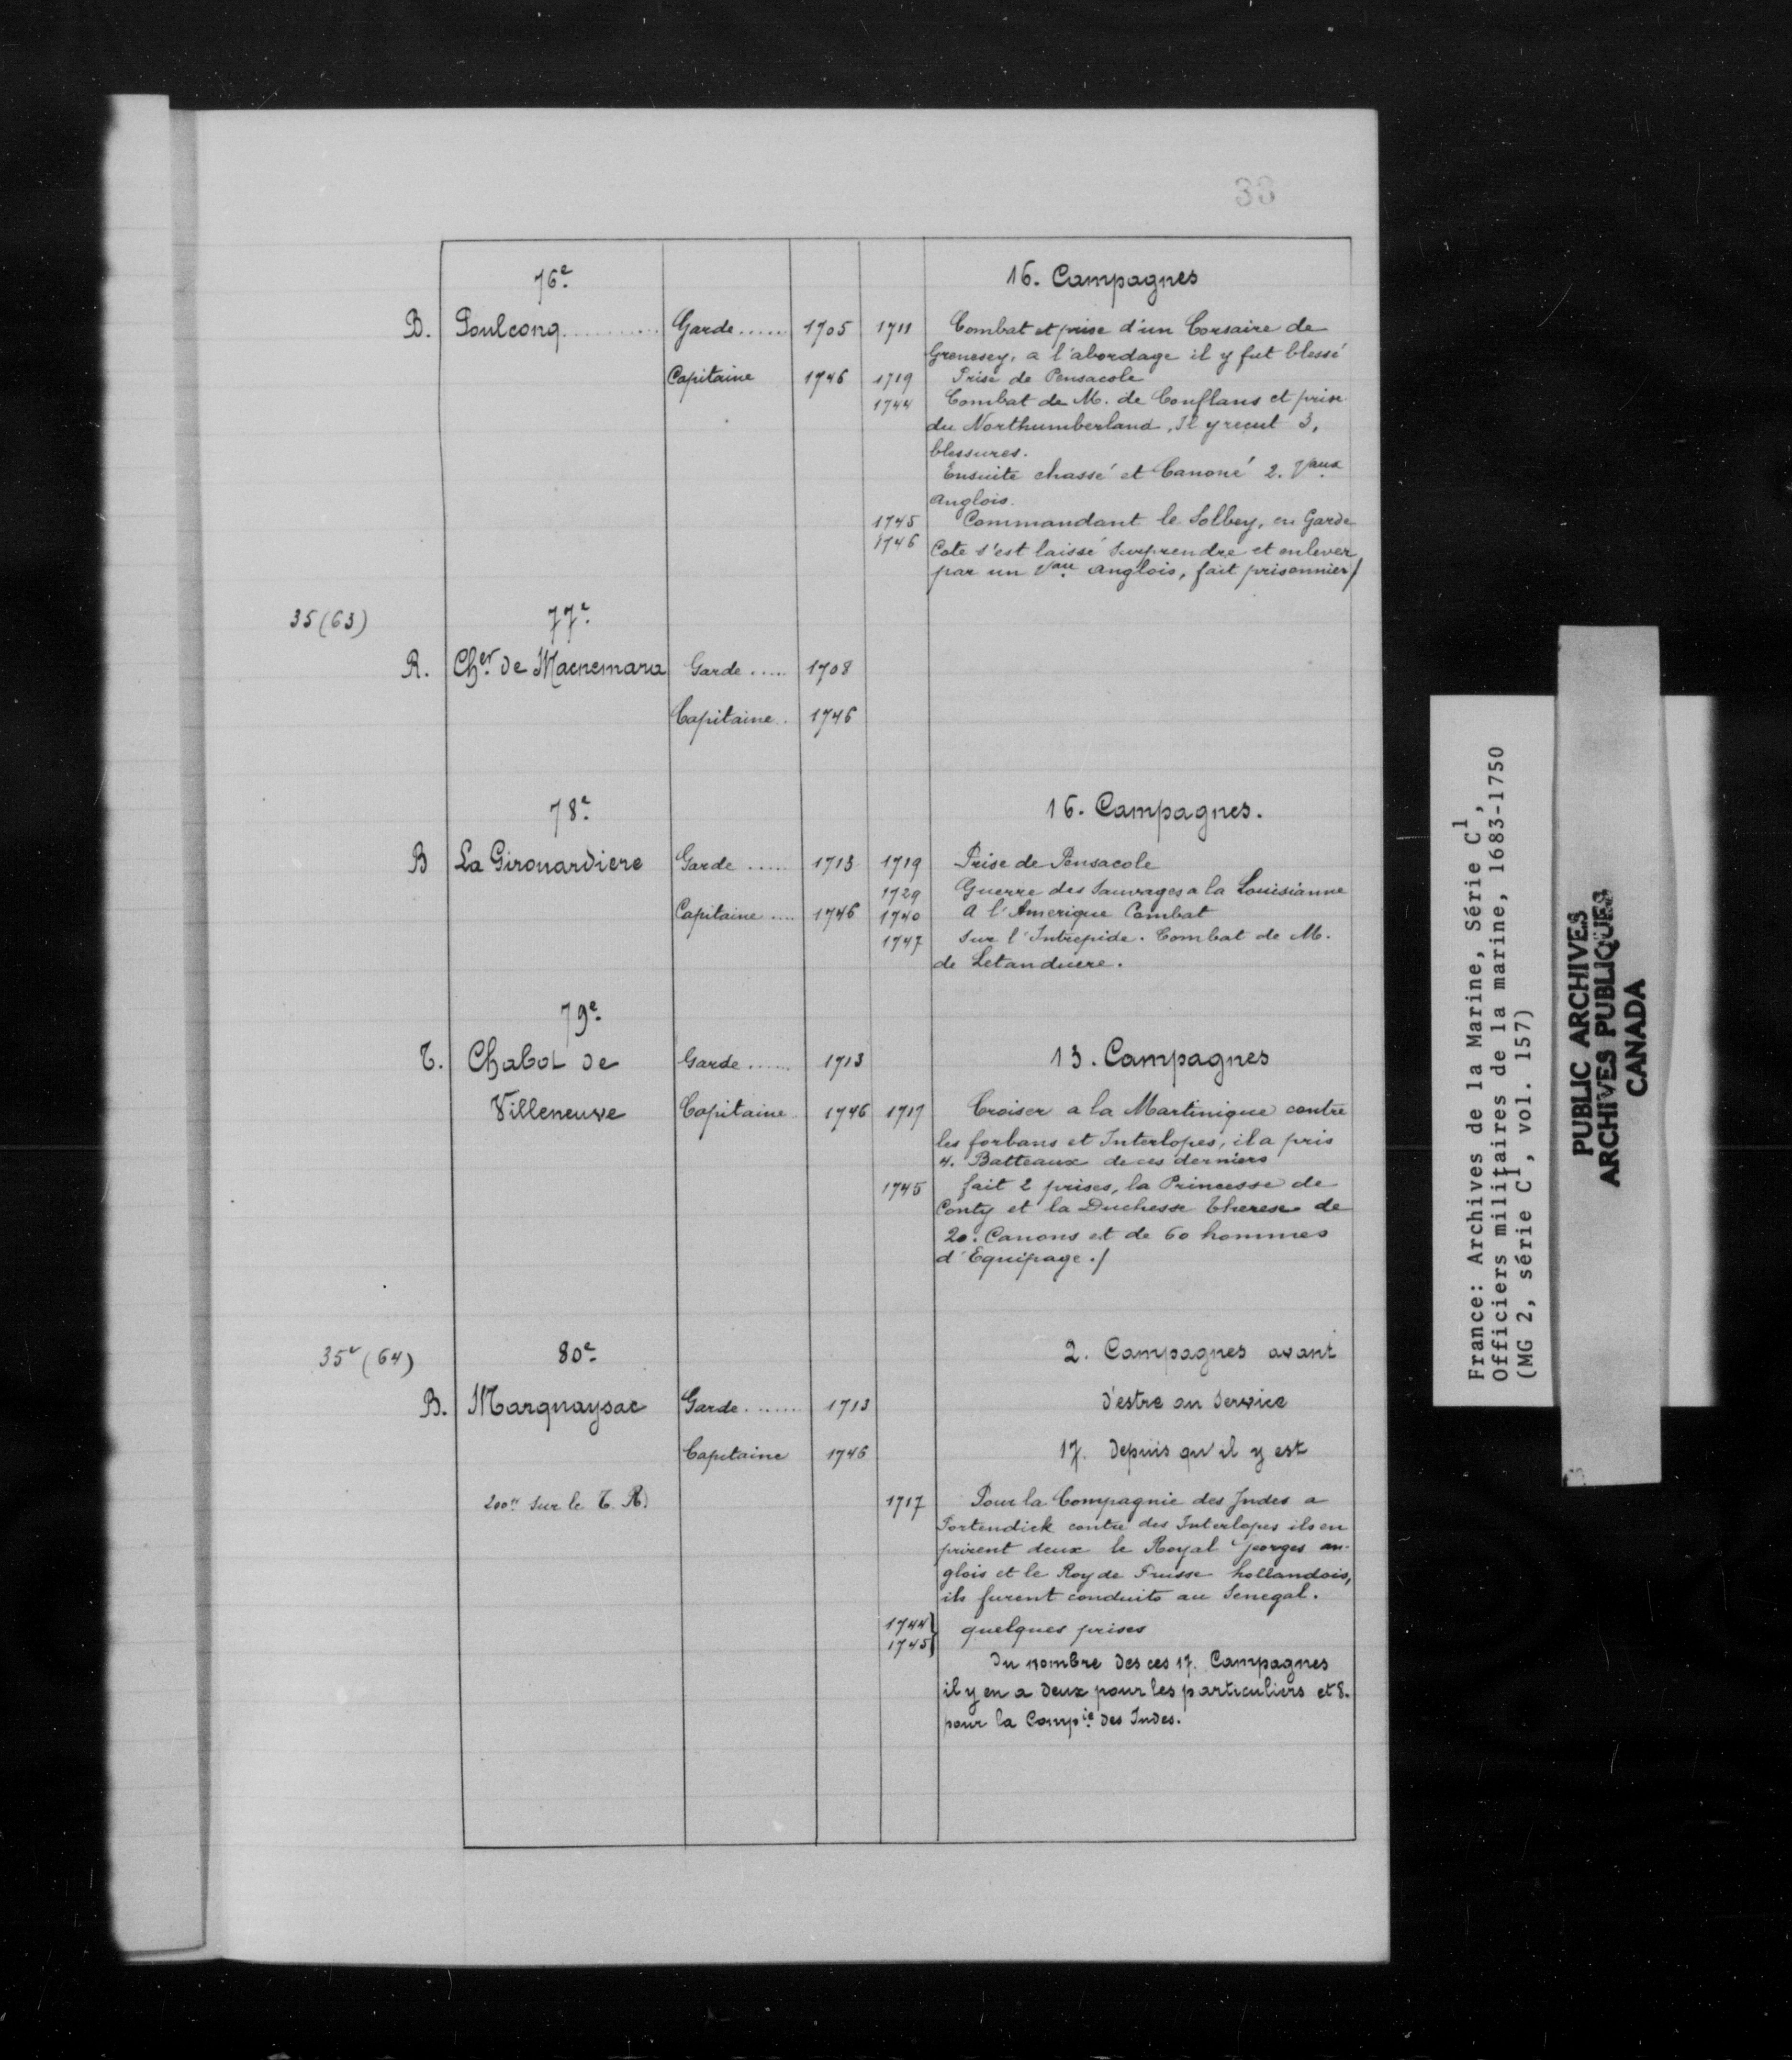 33
76e 16. Campagnes
B. Poulconq Garde 1705 1711 Combat et prise d'un Corsaire de
Grenesey, a l'abordage il y fut blessé
Capitaine 1746 1719 Prise de Pensacole
1744 Combat de M. de Conflans et prise
du Northumberland, Il y recut 3.
blessures.
Ensuite chassé et Canoné 2. Vaux
anglois.
1745 Commandant le Solbey, en Garde
1746 Cote s'est laissé surprendre et enlever
par un Vau anglois, fait prisonnier/
35 (63) 77e
R. Cher de Macnemara Garde ..... 1708
Capitaine. 1746
78e 16. Campagnes.
B La Girouardiere Garde ..... 1713 1719 Prise de Pensacole
1729 Guerre des Sauvages a la Louisianne
Capitaine .... 1746 1740 A l'Amerique Combat
1747 Sur l'Intrepide. Combat de M.
de Letanduere.
79e
T. Chabot de Garde ...... 1713 13. Campagnes
Villeneuve Capitaine 1746 1717 Croiser a la Martinique contre
les forbans et Interlopes, il a pris
4. Batteaux de ces derniers
1745 fait 2 prises, la Princesse de
Conty et la Duchesse Therese de
20. Canons et de 60 hommes
d'Equipage./
35v (64) 80e 2. Campagnes avant
B. Margnaysac Garde ....... 1713 d'estre au Service
Capitaine 1746 17. Depuis qu'il y est
200tt sur le T. R) 1717 Pour la Compagnie des Indes a
Portendick contre des Interlopes ils en
prirent deux le Royal Georges an-
glois et le Roy de Prusse hollandois,
ils furent conduits au Senegal.
1744} quelques prises
1745}
Du nombre des ces 17. Campagnes
il y en a deux pour les particuliers et 8.
pour la Compie des Indes.
France: Archives de la Marine, Série C1,
Officiers militaires de la marine, 1683-1750
(MG 2, série C1, vol. 157)
PUBLIC ARCHIVES
ARCHIVES PUBLIQUES
CANADA